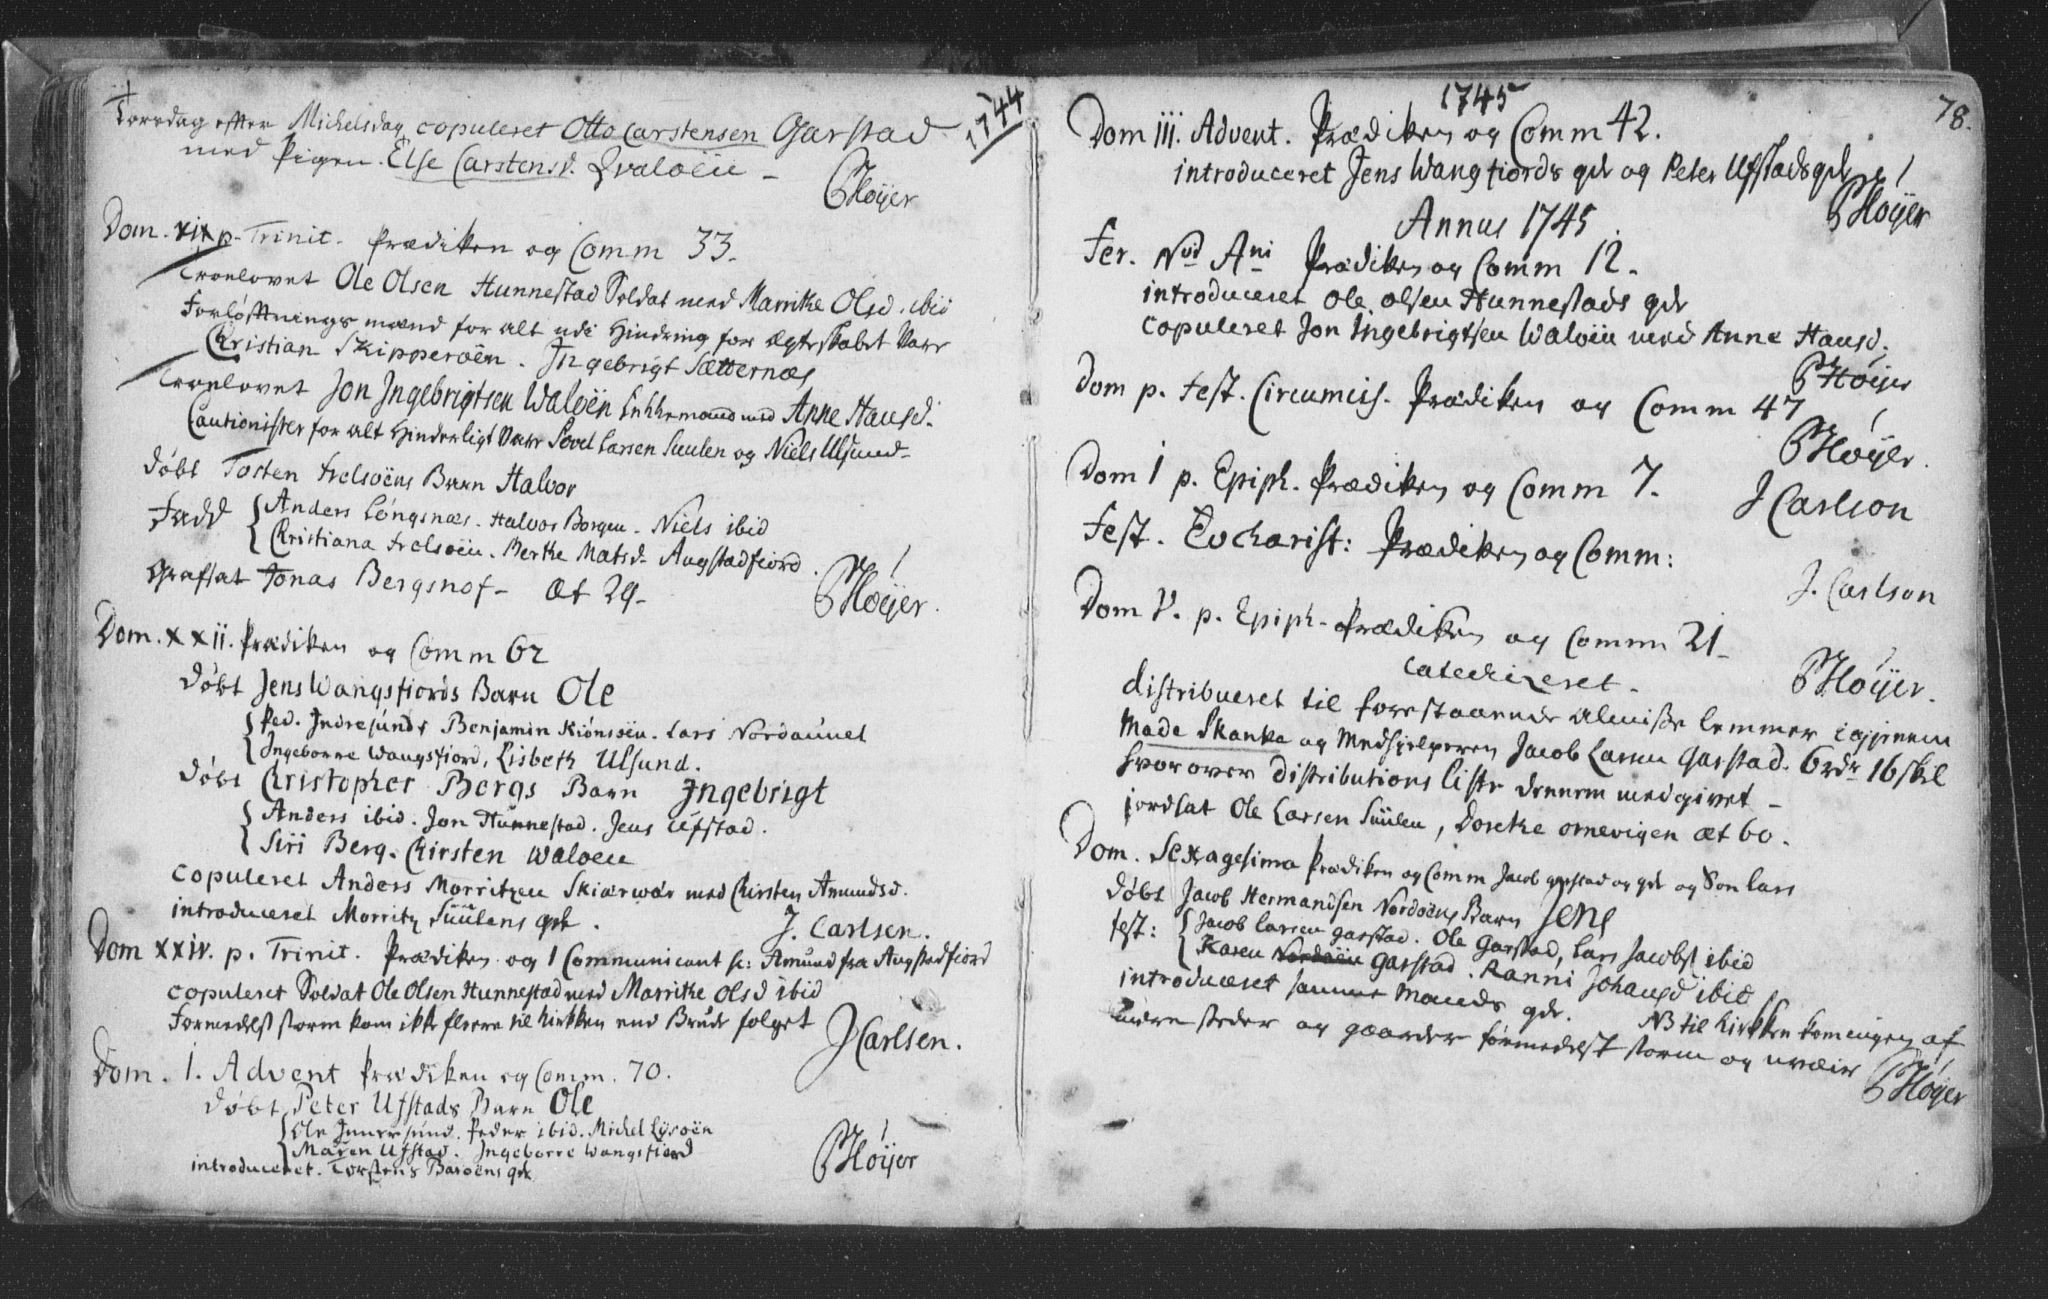 1744
Torsdag efter Michelsdag copuleret Otto Carstensen Garstad
med Pigen Else Carstensd. Qvaløen -
PHøyer
Dom. XIX p. Trinit. Prædiken og Comm 33.
Troelovet Ole Olsen Hunnestad Soldat med Marrike Olsd. ibid
Forløftningsmænd for alt udi Hindring for Ægteskabet var
Christian Skipperøen. Ingebrigt Sætternæs
Troelovet Jon Ingebrigtsen Waløen Enkkemand med Anne Hansd.
Cautionister for alt Hinderligt var Sovel Larsen Suulen og Niels Ulsund -
døbt Tosten Frelsøens Barn Halvor
Fadd Anders Longsnæs. Halvor Borgen - Niels ibid
Christiana Frelsøen. Berthe Matsd. Augstadfiord.
Grafsat Jonas Bergsnof - Æt 29 -
PHøyer.
Dom. XXII. Prædiken og Comm 62
døbt Jens Wangsfiords Barn Ole
Ped. Indresunds Benjamin Kiønsøen. Lars Nordaunet
Ingeborre Wangsfiord, Lisbeth Ulsund.
døbt Christopher Bergs Barn Ingebrigt
Anders ibid. Jon Hunnestad. Jens Ufstad.
Siri Berg. Chirsten Waløen
copuleret Anders Morritzen Skiærvær med Chirsten Amundsd.
introduceret Morritz Suulens qde.
J. Carlsen.
Dom XXIV. p. Trinit. Prædiken og 1 Communicant sc: Amund fra Augstadfiord
copuleret Soldat Ole Olsen Hunnestad med Marrike Olsd ibid
Formedelst storm kom ikke fleere til Kirkken end Brude folget
JCarlsen.
Dom. 1. Advent Prædiken og Comm. 70.
døbt Peter Ufstads Barn Ole
Ole Innersund. Peder ibid. Michel Lysøen
Maren Ufstad. Ingeborre Wangsfiord
introduceret. Torstens Barøens qde
PHøyer
1745
78.
Dom III. Advent. Prædiken og Comm 42.
introduceret Jens Wangfiords qde og Peter Ufstads qde
PHøyer
Annus 1745
Fer. Nvi Ani Prædiken og Comm 12.
introduceret Ole Olsen Hunnestads qde
copuleret Jon Ingebrigtsen Waløen med Anne Hansd.
PHøyer
Dom p. Fest. Circumcis. Prædiken og Comm 47
PHøyer.
Dom 1 p. Epiph. Prædiken og Comm 7.
J Carlson
Fest. Eucharist: Prædiken og Comm:
J. Carlson
Dom V. p. Epiph. Prædiken og Comm 21 -
catechizeret.
PHøyer.
distribueret til forestaaende almisse lemmer igjennem
Made Skanke og Medhjelperen Jacob Larsen Garstad. 6 rdr 16 skil
hvorover distributions liste dennem medgivet -
jordsat Ole Larsen Suulen, Dorethe Ornevigen æt 60.
Dom. Sexagesima Prædiken og Comm Jacob Garstad og qde og Søn Lars
døbt Jacob Hermandsen Nordøens Barn Jens
test: Jacob Larsen Garstad. Ole Garstad, Lars Jacobs ibid
Karen Nordøen Garstad. Ranni Johansd ibid
introduceret samme Mands qde.
NB til Kirkken kom ingen af
andre steder og gaarder formedelst storm og uvæir
PHøyer